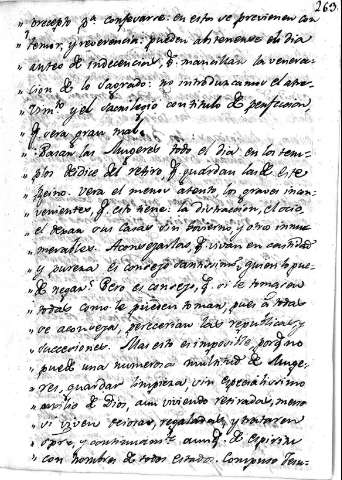 263.
" precepto pa. confesarse: en esto se previenen con
" temor, y reverencia: pueden abstenerse el dia
" antes de indecencias, q. mancillan la venera-
" cion de lo Sagrado: no introduzcamos el atre-
" vimto. y el sacrilegio con titulo de perfeccion,
" q. sera gran mal.
" Pasan las Mugeres todo el dia en los tem-
" plos desdice del retiro, q. guardan las de este
" Reino. vera el menos atento, los graves incon-
" venientes, q. esto tiene: la distraccion, el ocio,
" el dexar sus Casas sin govierno, y otros innu-
" merables. Aconsejarlas, q. vivan en castidad
" y pureza es consejo santissimo, quien lo pue-
" de negar? Pero es consejo, q. si le tomasen
" todas como le pueden tomar, pues a todas
" se aconseja, perecerian las republicas, y
" succesiones. Mas esto es impossible, porq. no
" puede una numerosa multitud de Muge-
" res, guardar limpieza, sin especialissimo
" auxilio de Dios, aun viviendo retiradas, menos
" si viven ociosas, regaladas, y tratan
" siempre, y continuamte. aunq. de espiritu
" con hombres de todos estados. Compuso Tem-